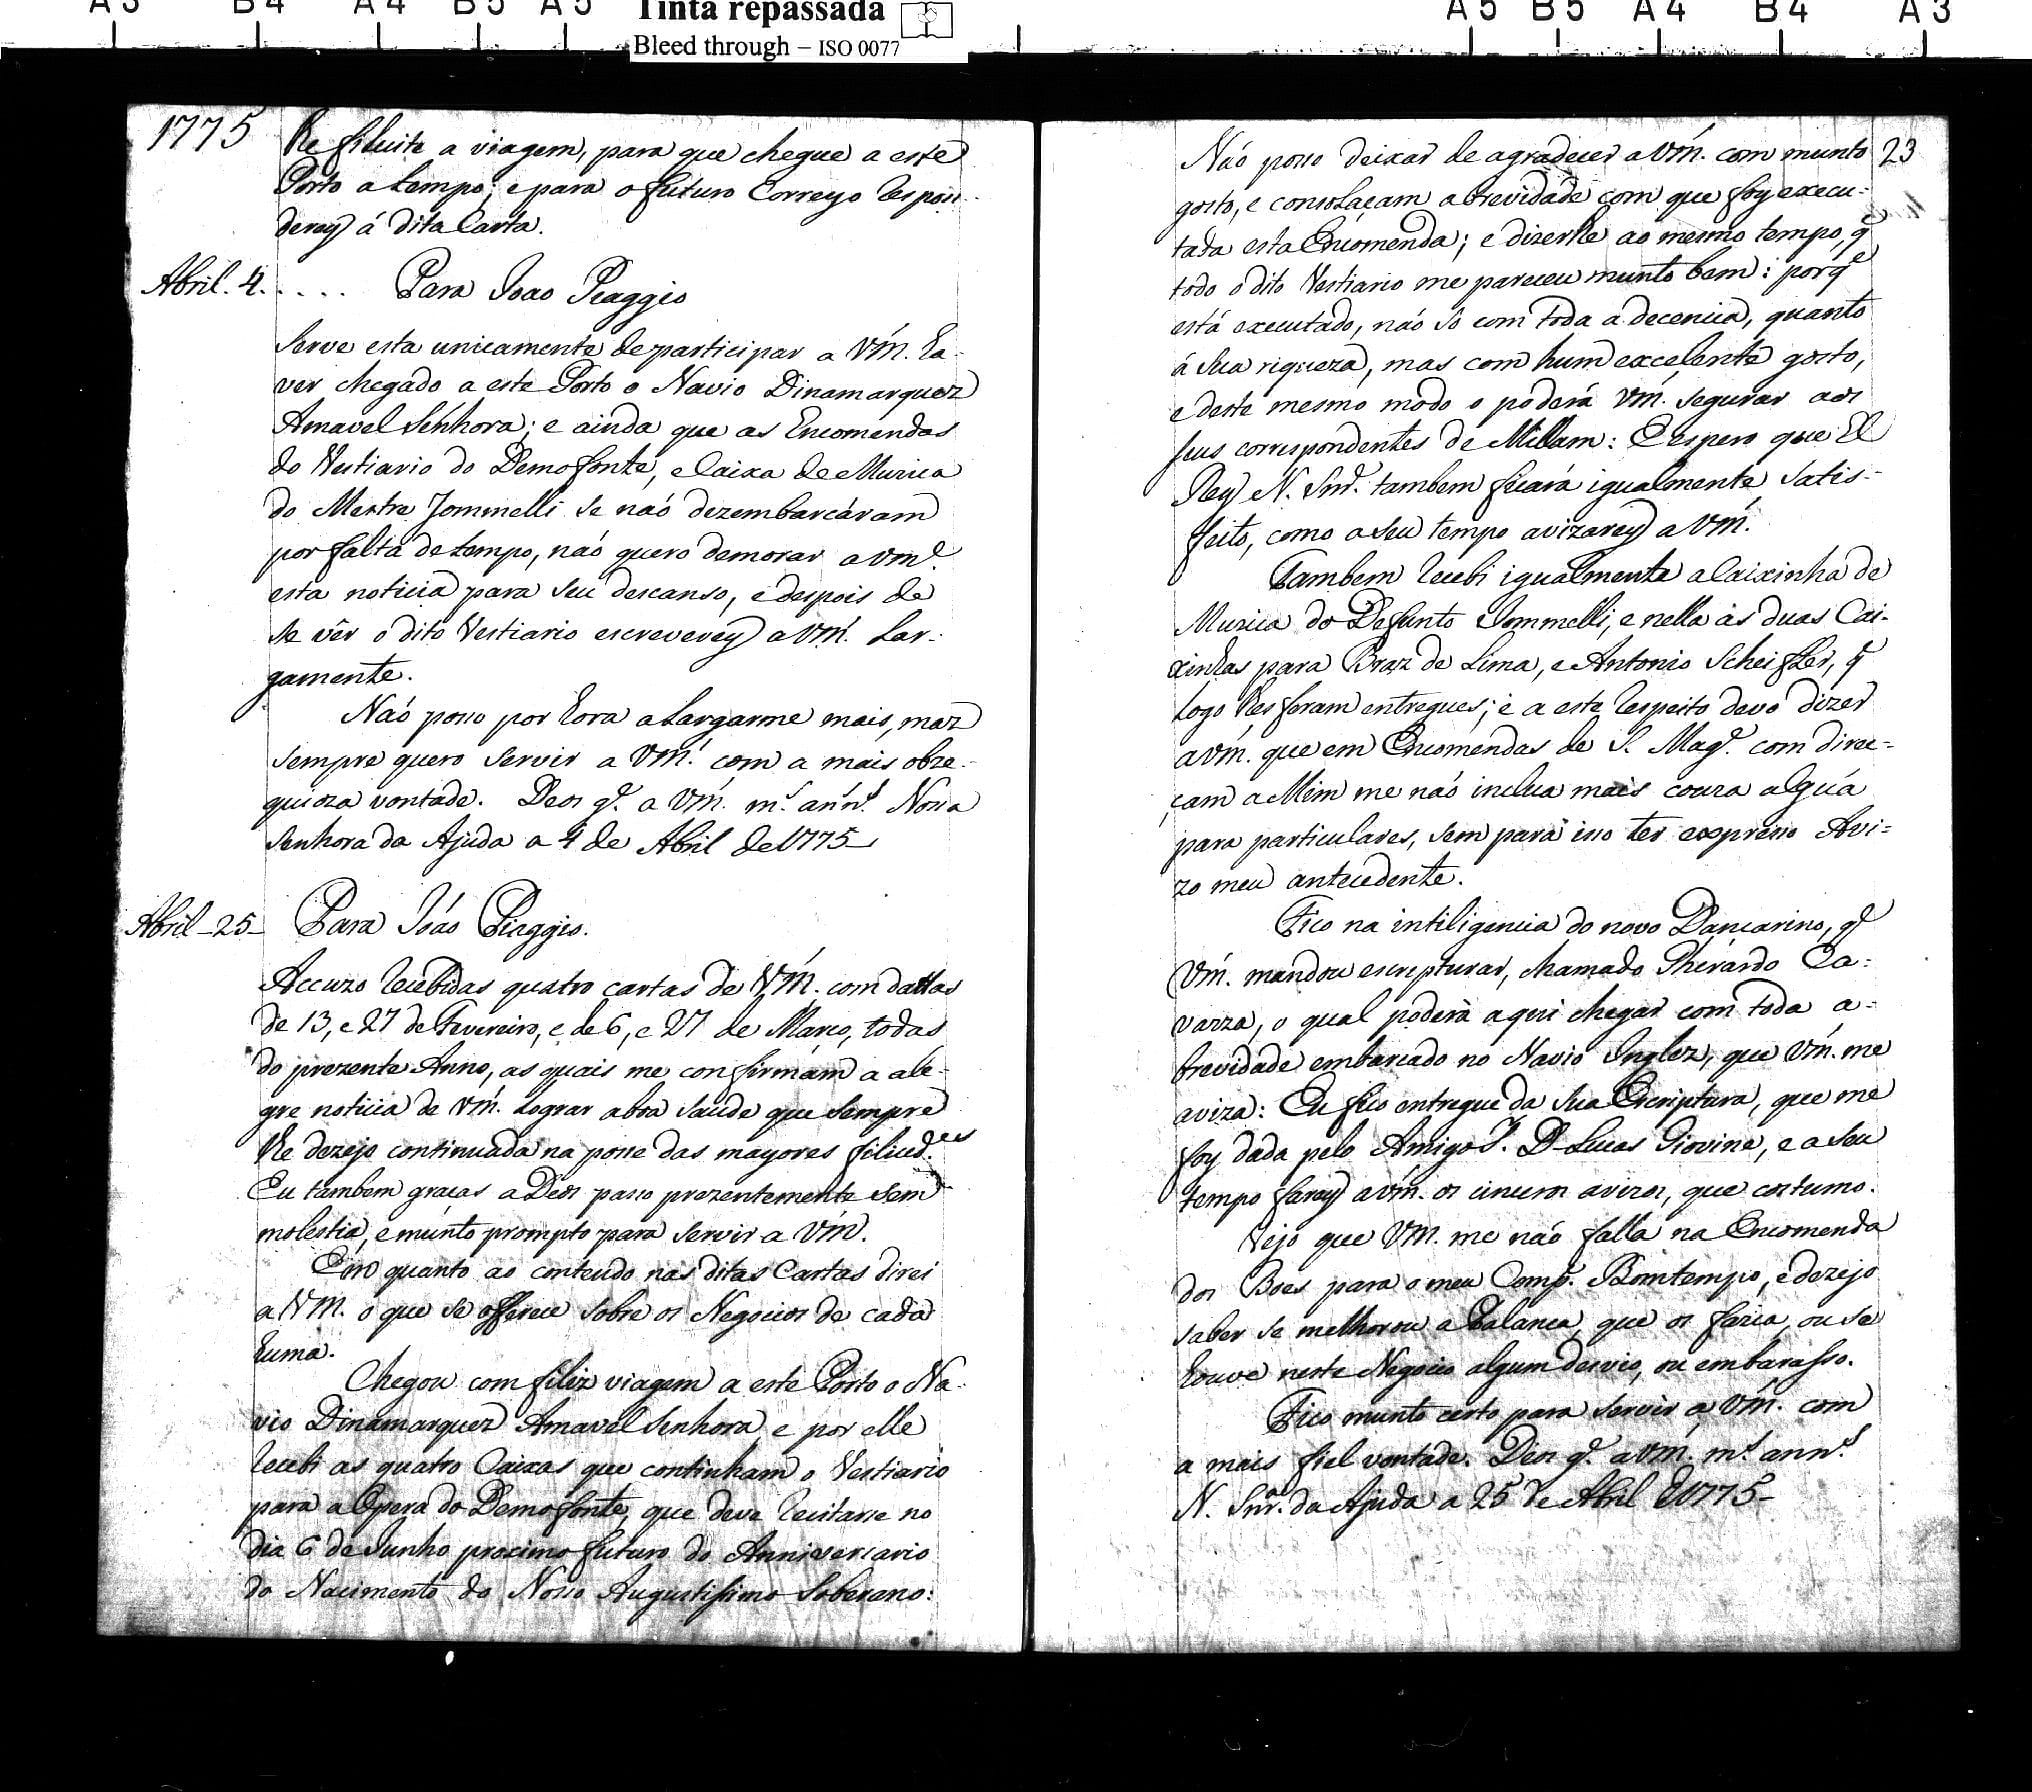 A3 B4 A4 B5 A5 Tinta repassada A5 B5 A4 B4 A3
Bleed through – ISO 0077
1775
lhe filicite a viagem, para que chegue a este
Porto a tempo; e para o futuro Correyo respon-
derey á dita Carta.
Abril. 4. . . . . Para Joao Piaggio
Serve esta unicamente de participar a Vm̃. ha-
ver chegado a este Porto o Navio Dinamarquez
Amavel Senhora; e ainda que as Encomendas
do Vestiario do Demofonte, e Caixa de Muzica
do Mestre Jommelli se naó dezembarcáram
por falta de tempo, naó quero demorar a Vm.ce
esta noticia para seu descanso, e despois de
se vêr o dito Vestiario escreverey a Vm̃. Lar-
gamente.
Naó posso por hora alargarme mais, maz
sempre quero servir a Vm̃. com a mais obze-
quioza vontade. Deos g.e a Vm̃. m.s ann.s Nossa
Senhora da Ajuda a 4 de Abril de 1775
Abril - 25 - Para Joáo Piaggio.
Accuzo recebidas quatro cartas de Vm̃. com dattas
de 13, e 27 de Fevereiro, e de 6, e 27 de Março, todas
do prezente Anno, as quais me confirmam a ale-
gre noticia de Vm̃. Lograr a boa saude que sempre
lhe dezejo continuada na posse das mayores filicid.es
Eu tambem graças a Deos passo prezentemente sem
molestia, e munto prompto para servir a Vm̃.
Em quanto ao conteudo nas ditas Cartas direi
a Vm̃. o que se offerece sobre os Negocios de cada
huma.
Chegou com filiz viagem a este Porto o Na-
vio Dinamarquez Amavel Senhora, e por elle
recebi as quatro Caixas que continham o Vestiario
para a Opera do Demofonte, que deve recitarse no
dia 6 de Junho proximo futuro do Anniversario
do Nacimento do Nosso Augustissimo Soberano:
23
Naó posso deixar de agradecer a Vm̃. com munto
gosto, e consolaçam a brevidade com que foy execu-
tada esta Encomenda; e dizerlhe ao mesmo tempo, q̃
todo o dito Vestiario me pareceu munto bem: porq̃
está executado, náo só com toda a decencia, quanto
á sua riqueza, mas com hum excelente gosto,
e deste mesmo modo o poderá Vm̃. segurar aos
seus correspondentes de Millam: E espero que El
Rey N. Snr̃. tambem ficará igualmente satis-
feito, como a seu tempo avizarey a Vm̃.
Tambem recebi igualmente a Caixinha de
Muzica do Defunto Jommelli, e nella as duas Cai-
xinhas para Braz de Lima, e Antonio Scheifler, q̃
logo lhes foram entregues; e a este respeito devo dizer
a Vm̃. que em Encomendas de S. Mag.e com direc-
çam a Mim me naó inclua mais couza algũa
para particulares, sem para isso ter expresso Avi-
zo meu antecedente.
Fico na intiligencia do novo Dançarino, q̃
Vm̃. mandou escripturar, chamado Gherardo Ca-
varza, o qual poderà aqui chegar com toda a-
brevidade embarcado no Navio Inglez, que Vm̃. me
aviza: Eu fico entregue da sua Escriptura, que me
foy dada pelo Amigo S.r D. Lucas Giovine, e a seu
tempo farey a Vm̃. os cincoros avizos, que costumo.
Vejo que Vm̃. me naó falla na Encomenda
dos Boes para o meu Comp.e Bomtempo, e dezejo
saber se melhorou a Balança, que os fazia, ou se
houve neste Negocio algum desvio, ou embarasso.
Fico munto certo para servir a Vm̃. com
a mais fiel vontade. Deos g.e a Vm̃. m.s ann.s
N. Snr.a da Ajuda a 25 de Abril de 1775 -